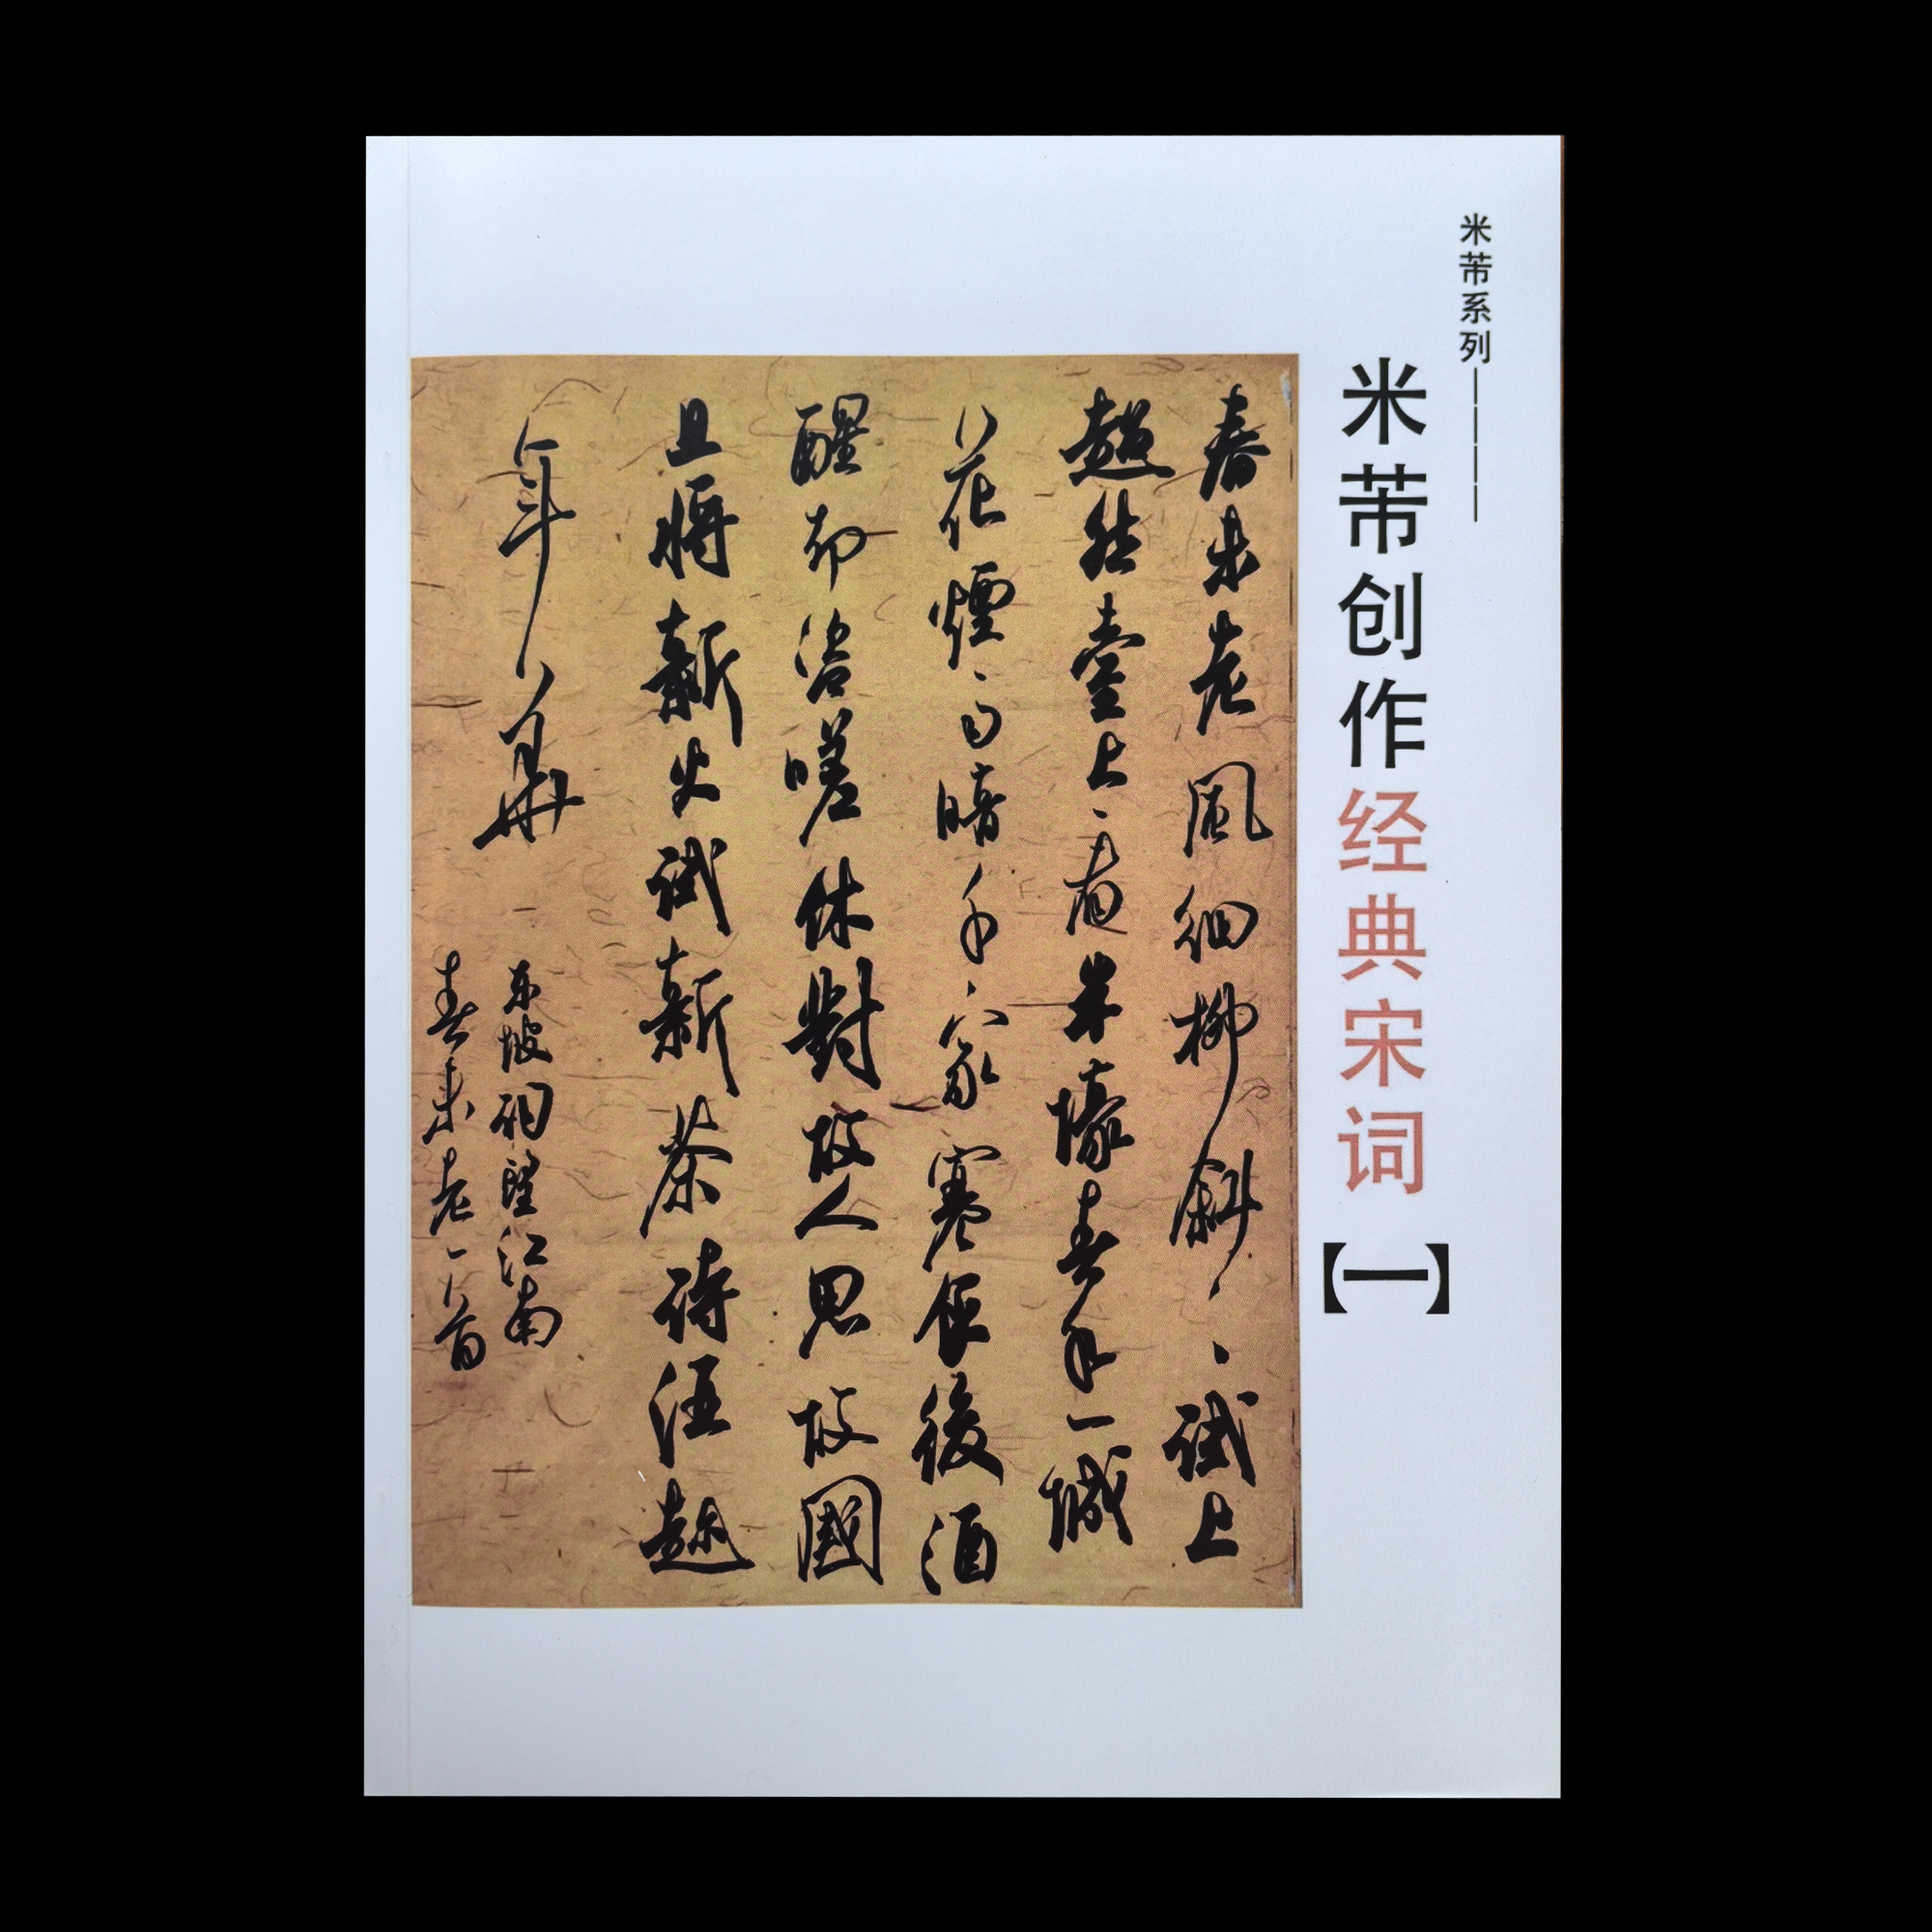 米芾系列————
米芾创作经典宋词【一】
春未老風細柳斜〻試上
超然臺上看半壕春水一城
花煙雨暗千家寒食後酒
醒却咨嗟休對故人思故國
且將新火試新茶詩酒趂
年華
東坡詞望江南
春未老一首